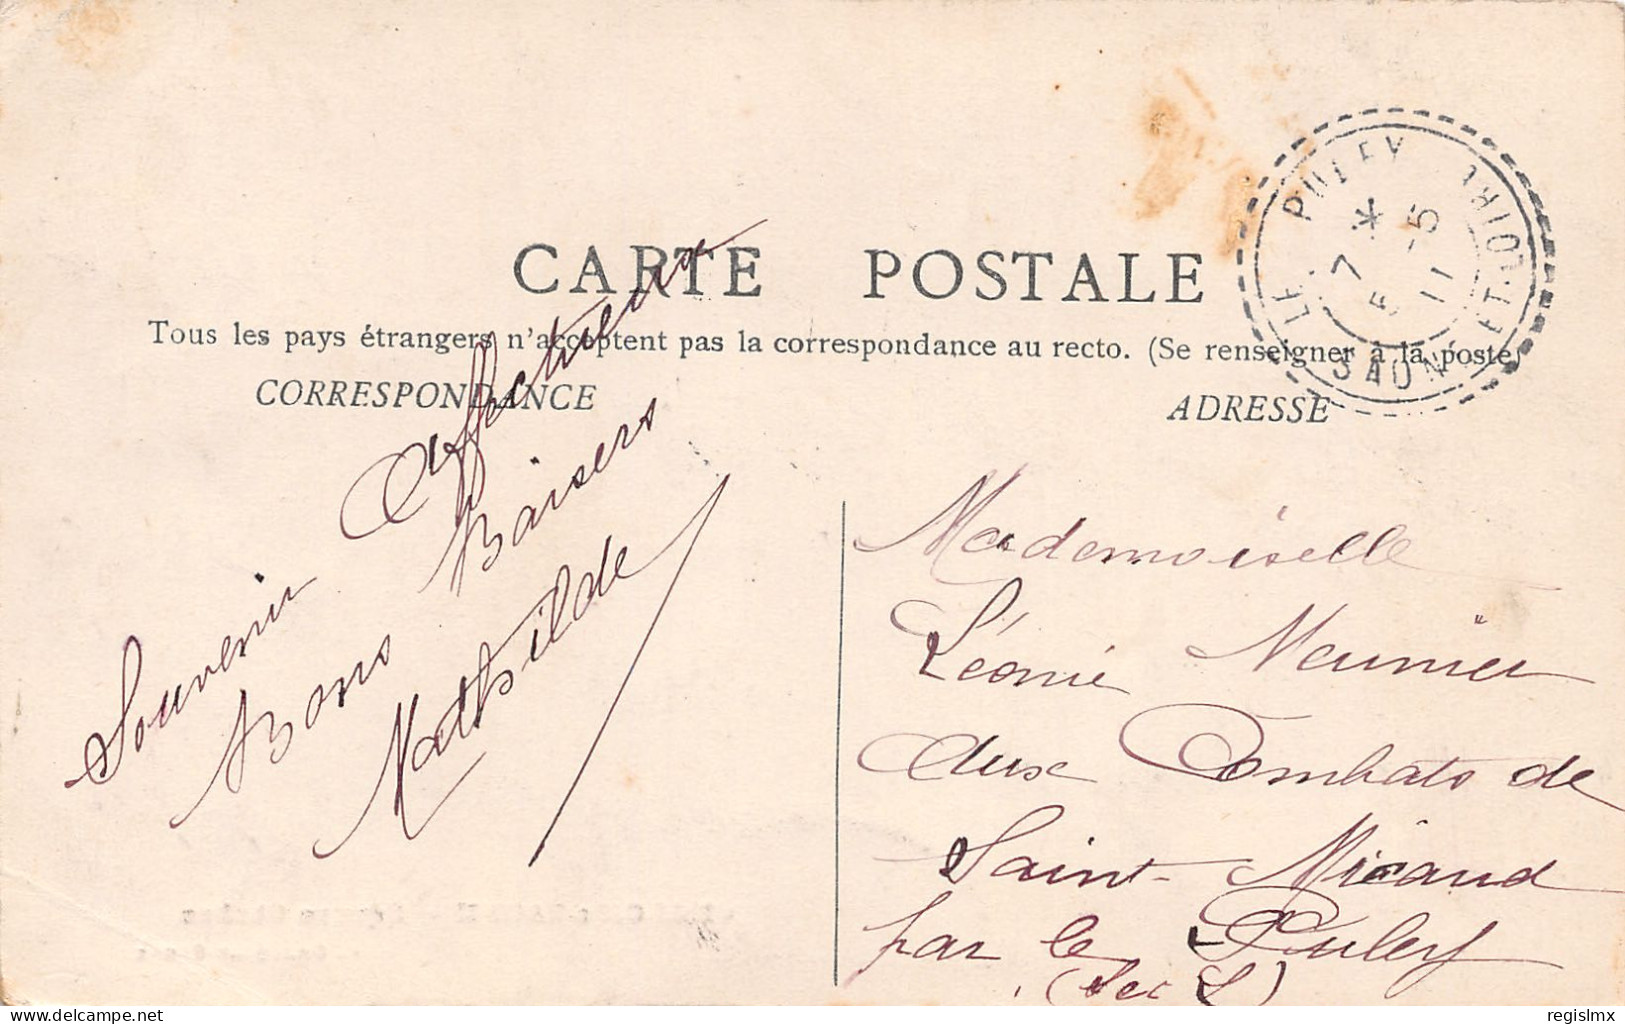 CARTE POSTALE
Tous les pays étrangers n'acceptent pas la correspondance au recto. (Se renseigner à la poste)
CORRESPONDANCE
ADRESSE
LE PULEY
SAONE ET-LOIRE
7 * -5
5 11
Souvenir Affectueux
Bons Baisers
Mathilde
Mademoiselle
Léonie Meunier
Aux Combats de
Saint-Micaud
par le Puley
(S et L)
www.delcampe.net
regislmx